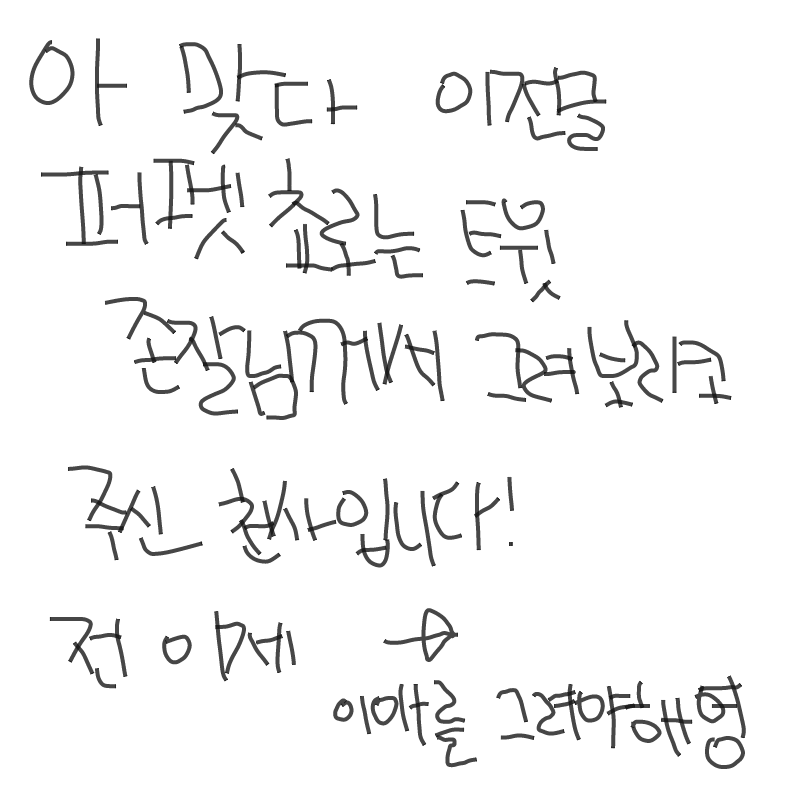 아 맞다 이전물
퍼펫 참로는 트윗
존잘님께서 그려보라고
주신 천사입니다!
전 이제 →
이마를 그려야해영